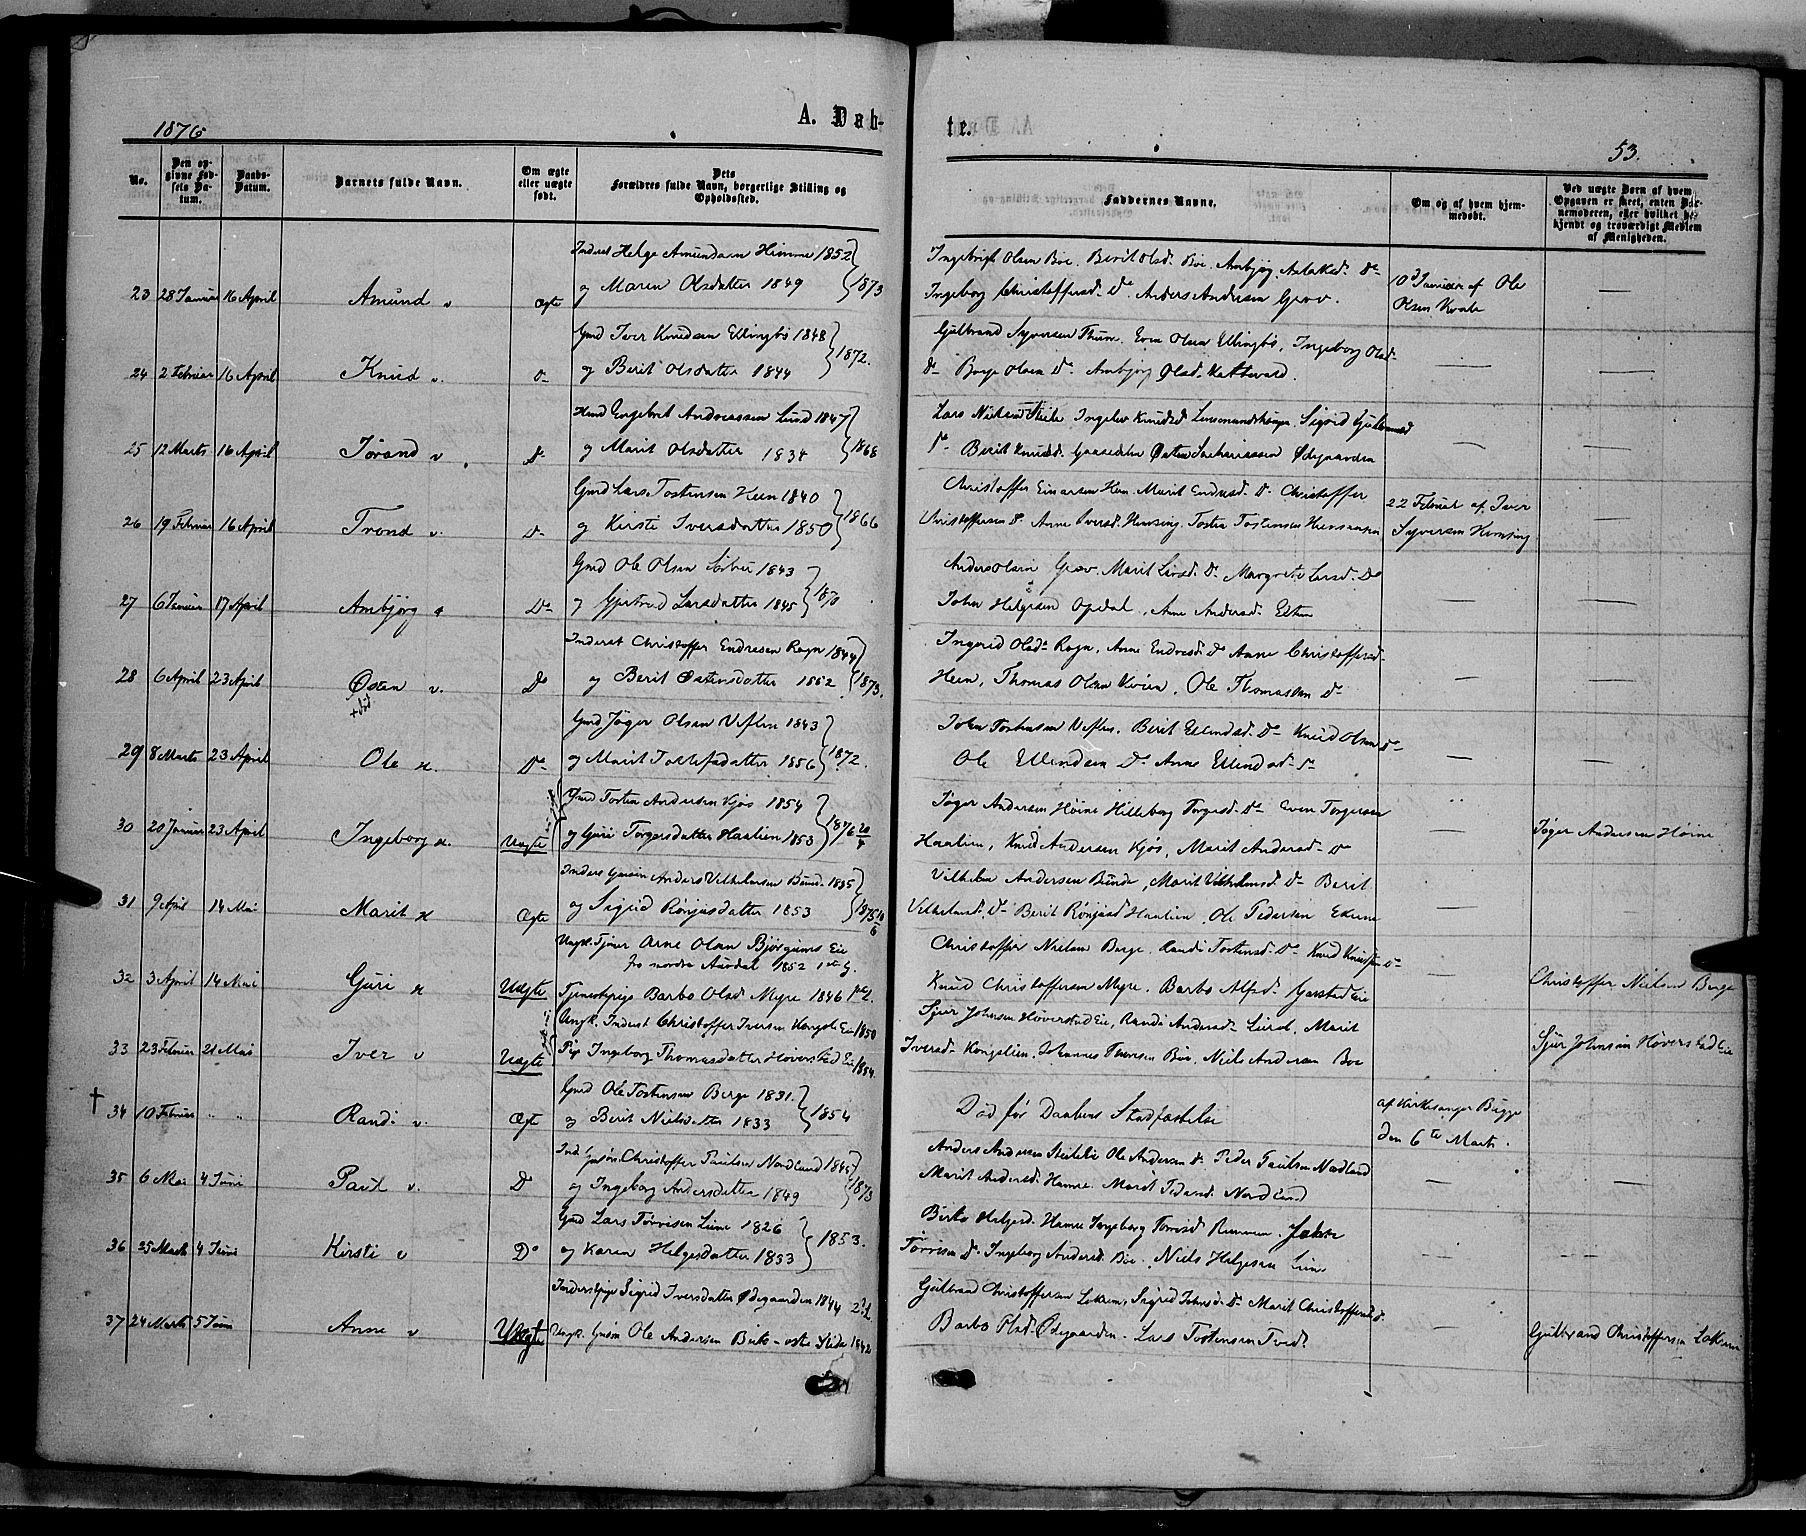 1876
A. Døb-
te.
53.
No.
Den op-
givne Fød-
sels Da-
tum.
Daabs-
Datum.
Barnets fulde Navn.
Om ægte
eller uægte
født.
Dets
Forældres fulde Navn, borgerlige Stilling og
Opholdssted.
Faddernes Navne.
Om og af hvem hjem-
medøbt.
Ved uægte Børn af hvem
Opgaven er skeet, enten Bar-
nemoderen, eller hvilket be-
kjendt og troværdigt Medlem
af Menigheden.
Inderst Helge Amundsen Himme 1852
23 28 Januar 16 April Amund v Ægte og Maren Olsdatter 1849 1873
Ingebrigt Olsen Boe. Berit Olsd. Boe. Ambjøg Aslaksd. Do
Ingeborg Christoffersd. Do Anders Andersen Grov.
10d Januar af Ole
Olsen Kvale
Gmd Iver Knudsen Ellingbø 1848
24 2 Februar 16 April Knud v. Do og Berit Olsdatter 1844 1872.
Gulbrand Syversen Thune. Even Olsen Ellingbø, Ingeborg Olsd.
Do Boye Olsen Do. Ambjøg Olsd. Kattevold.
Hmd Engebret Andreassen Lund 1847
25 12 Marts 16 April Jørand v Do og Marit Olsdatter 1834 1868
Lars Nielsen Steile Ingelev Knudsd Sigrid Gulbrandsd
Do Berit Knudsd. Gaasedelen Østen Zachariassen Ødegaarden
Gmd Lars Tostensen Heen 1840
26 19 Februar 16 April Trond v. Do og Kirsti Iversdatter 1850 1866
Christoffer Einarsen Hen. Marit Endresd. Do Christoffer
Christoffersen Do. Anne Iversd. Hemsing. Tosten Tostensen
22 Februar af Iver
Syversen Hemsing
Gmd Ole Olsen Sørbøe 1843
27 6 Januar 17 April Ambjørg Do og Gjertrud Larsdatter 1845 1870
Anders Olsen Grøv. Marit Larsd. Do. Margrete Larsd. Do
John Helgesen Opdal, Ane Andersd. Eltun
Inderst Christoffer Endresen Rogn 1844
28 6 April 23 April Østen v. Do og Berit Østensdatter 1852 1873.
+ død
Ingerid Olsd. Rogn, Anne Endresd. Do Anne Christoffersd.
Heen, Thomas Olsen Kvien, Ole Thomassen Do
Gmd Jøger Olsen Veflen 1843
29 8 Marts 23 April Ole Do og Marit Tollefsdatter 1856 1872.
John Tostensen Veflen, Berit Ellendsd. Do Knud Olsen Do
Ole Ellendsen Do Anne Ellendsd. Do
Gmd Tosten Andersen Kjøs 1854
30 20 Januar 23 April Ingeborg Uægte og Guri Torgersdatter Haalien 1853 1876 20/4
Jøger Andersen Høine Hilleborg Torgersd. Do Even Torgersen
Haalien, Knud Andersen Kjøs, Marit Andersd. Do
Jøger Andersen Høine
Anders Vilhelmsen Bunde 1835
31 9 April 14 Mai Marit Ægte og Sigrid Rønjusdatter 1853 1875
Vilhelm Andersen Bunde, Marit Vilhelmsd. Do Berit
Vilhelmsd. Do Berit Rønjusd Haalien. Ole Pedersen
Ungk. Tjener Arne Olsen Bjørgums Eie
fra nordre Aurdal 1852 1ste G.
32 3 April 14 Mai Guri Uægte Tjenestepige Barbo Olsd. Myre 1846
Christoffer Nielsen Berge. Randi Tostensd. Do Knud Knudsen Do
Knud Christoffersen Myre. Barbo Alfsd.
Christoffer Nielsen Berge
Ungk. Inderst Christoffer Iversen Kongsli Eie 1850
33 23 Februar 21 Mai Iver v Uægte Pige Ingeborg Thomasdatter Høverstad Eie 1854.
Sjur Johnsen Høverstad Eie, Randi Andersd. Lund, Marit
Iversd. Kongslien, Johannes Thomsen Boe, Niels Andersen Boe
Sjur Johnsen Høverstad Eie
Gmd Ole Tostensen Berge 1831.
† 34 10 Februar " " Randi v. Ægt og Berit Nielsdatter 1833 1854
Død før Daabens Stadfæstelse
af Kirkesanger Bugge
den 6te Marts.
Ind Gaardm. Christoffer Paulsen Nordland
35 6 Mai 4 Juni Paul v. Do og Ingeborg Andersdatter 1849 1873
Anders Andersen Steile Ole Andersen Do Peder Paulsen Nordland
Marit Andersd. Hamre. Marit Pedersd. Nordland
Gmd Lars Torrisen Lime 1826
36 25 Marts 4 Juni Kirsti v Do og Karen Helgesdatter 1833 1853.
Birte Helgesd. Hamre Ingeborg
Torrisen Do. Ingeborg Andersd. Boe. Niels Helgesen Lime
Inderstpige Sigrid Iversdatter Ødegaarden 1844
37 24 Marts 5 Juni Anne v. Uægt Ungk. Ole Andersen 1842
Gulbrand Christoffersen Lokrem, Sigrid Johnsd. Do Marit Christoffersd.
Barbo Olsd. Ødegaarden. Lars Tostensen Tved.
Gulbrand Christoffersen Lokrem